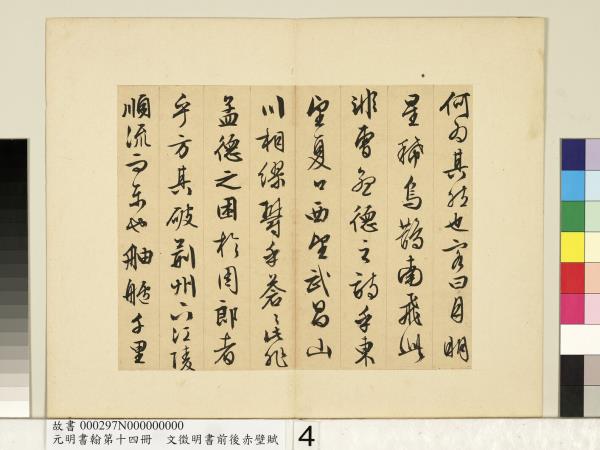 何為其然也客曰月明
星稀烏鵲南飛此
非曹孟德之詩乎東
望夏口西望武昌山
川相繆鬱乎蒼〻此非
孟德之困於周郎者
乎方其破荊州下江陵
順流而東也舳艫千里
故書 000297N000000000
元明書翰第十四冊 文徵明書前後赤壁賦
4